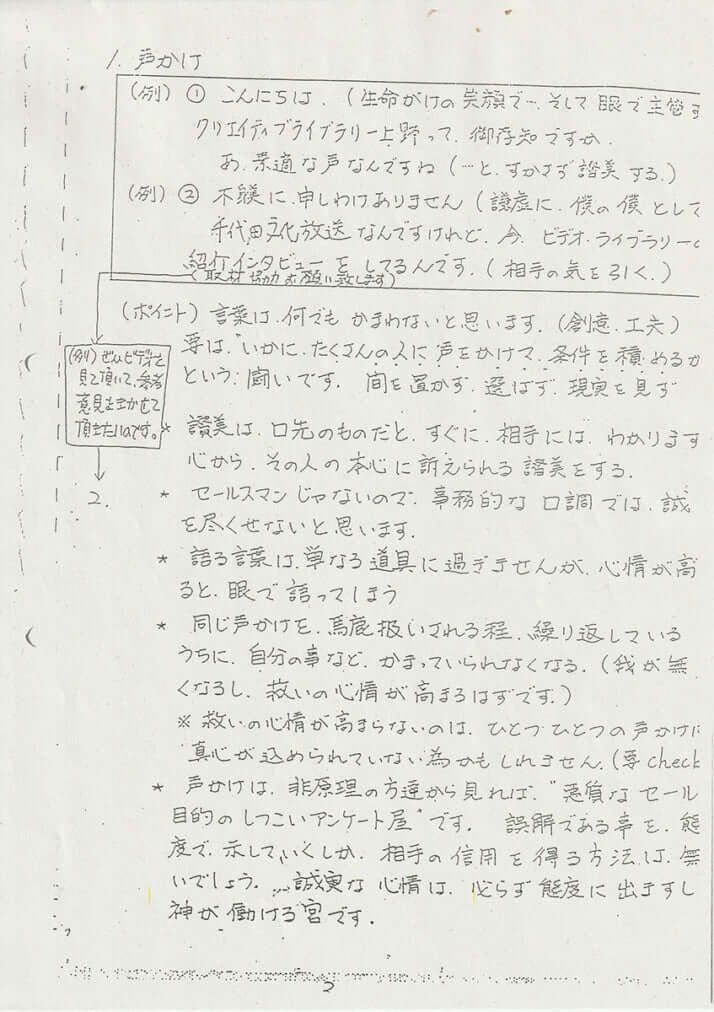 1. 声かけ
(例) ① こんにちは. (生命がけの笑顔で…そして眼で主管す
クリエイティブライブラリー上野って. 御存知ですか.
あ. 素適な声なんですね (…と. すかさず讃美する.)
(例) ② 不躾に. 申しわけありません (謙虚に. 僕の僕として
千代田文化放送なんですけれど. 今. ビデオ・ライブラリーの
紹介インタビューをしてるんです. (相手の気を引く.)
(取材協力お願い致します)
(ポイント) 言葉は. 何でもかまわないと思います. (創意. 工夫)
要は、"いかに. たくさんの人に声をかけて. 条件を積めるか
という. 闘いです. 間を置かず. 選ばず. 現実を見ず
(例) ぜひビデオを
見て頂いて、参考
意見をきかせて
頂きたいのです。
* 讃美は. 口先のものだと. すぐに. 相手には. わかります
心から. その人の本心に訴えられる讃美をする.
2.
* セールスマンじゃないので. 事務的な口調では. 誠
を尽くせないと思います.
* 語る言葉は. 単なる道具に過ぎませんが. 心情が高
ると. 眼で語ってしまう
* 同じ声かけを. 馬鹿扱いされる程. 繰り返している
うちに. 自分の事など. かまっていられなくなる. (我が無
くなるし. 救いの心情が高まるはずです.)
※ 救いの心情が高まらないのは. ひとつひとつの声かけに
真心が込められていない為かもしれません. (要check
* 声かけは. 非原理の方達から見れば. "悪質なセール
目的のしつこいアンケート屋"です. 誤解である事を. 態
度で. 示していくしか. 相手の信用を得る方法は. 無
いでしょう. … 誠実な心情は. 必らず態度に出ますし
神が働ける宮です.
2